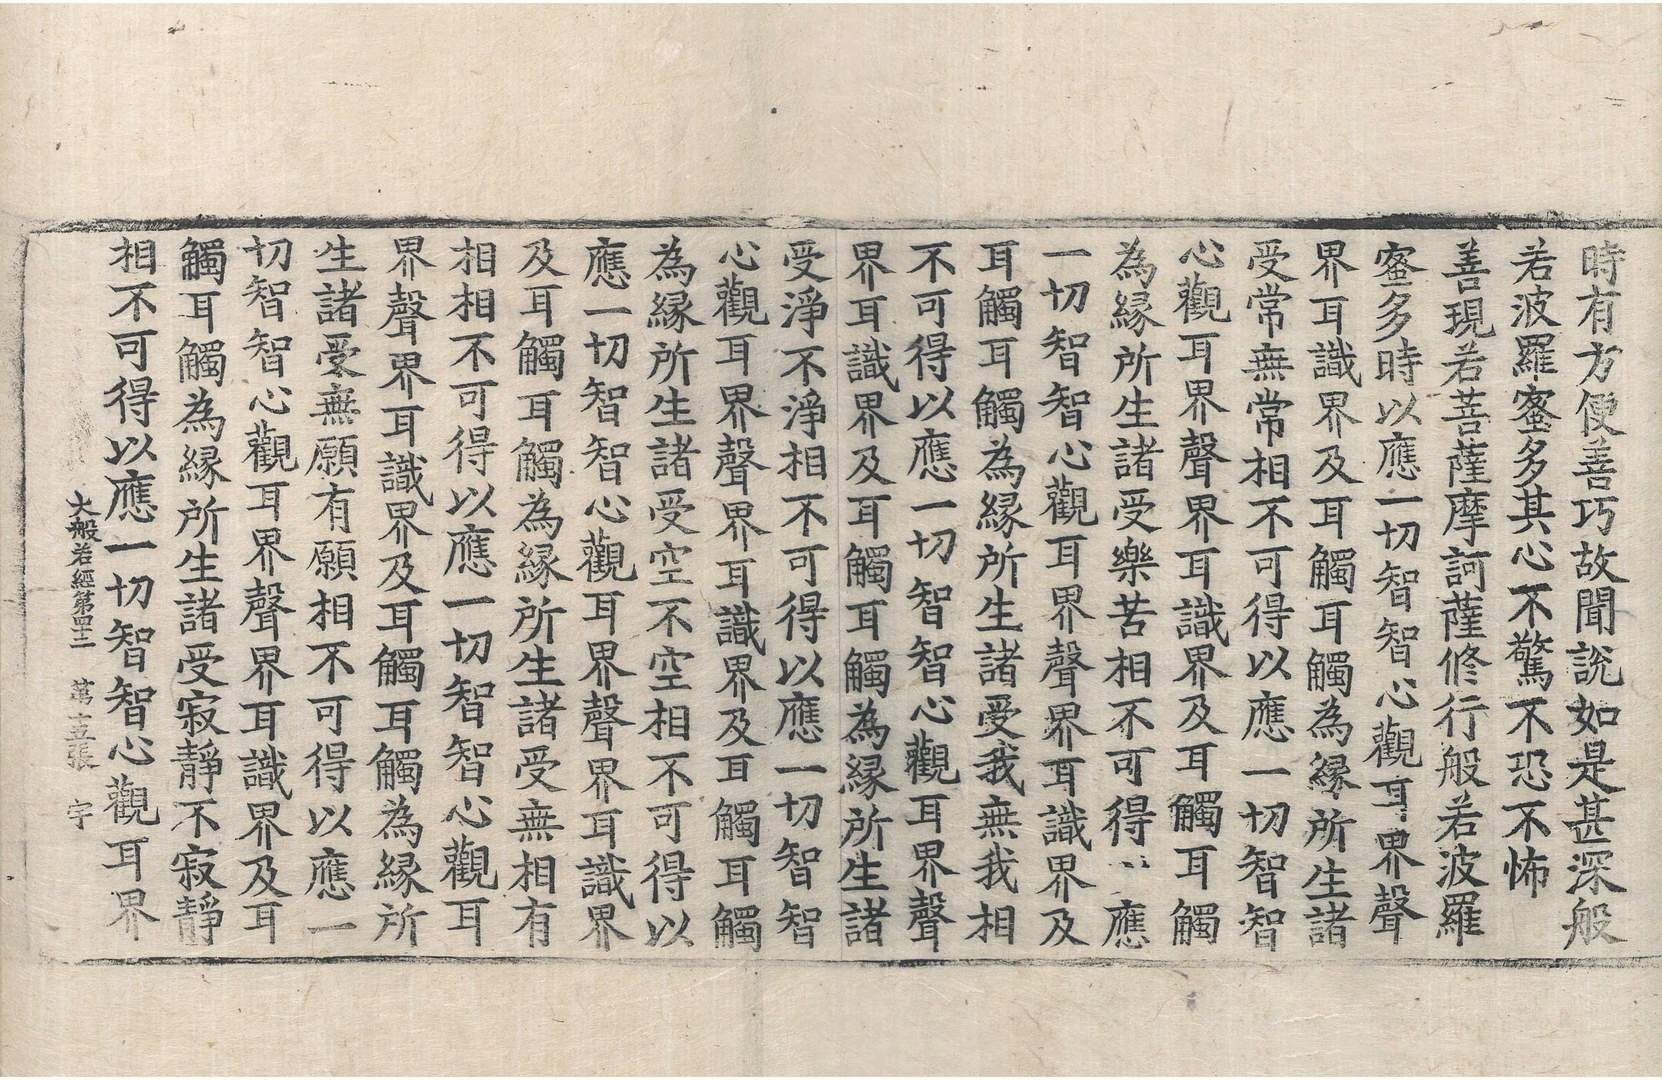 時有方便善巧故聞說如是甚深般
若波羅蜜多其心不驚不恐不怖
善現若菩薩摩訶薩修行般若波羅
蜜多時以應一切智智心觀耳界聲
界耳識界及耳觸耳觸為緣所生諸
受常無常相不可得以應一切智智
心觀耳界聲界耳識界及耳觸耳觸
為緣所生諸受樂苦相不可得 應
一切智智心觀耳界聲界耳識界及
耳觸耳觸為緣所生諸受我無我相
不可得以應一切智智心觀耳界聲
界耳識界及耳觸耳觸為緣所生諸
受淨不淨相不可得以應一切智智
心觀耳界聲界耳識界及耳觸耳觸
為緣所生諸受空不空相不可得以
應一切智智心觀耳界聲界耳識界
及耳觸耳觸為緣所生諸受無相有
相相不可得以應一切智智心觀耳
界聲界耳識界及耳觸耳觸為緣所
生諸受無願有願相不可得以應一
切智智心觀耳界聲界耳識界及耳
觸耳觸為緣所生諸受寂靜不寂靜
相不可得以應一切智智心觀耳界
大般若經第四十二 第五張 宇